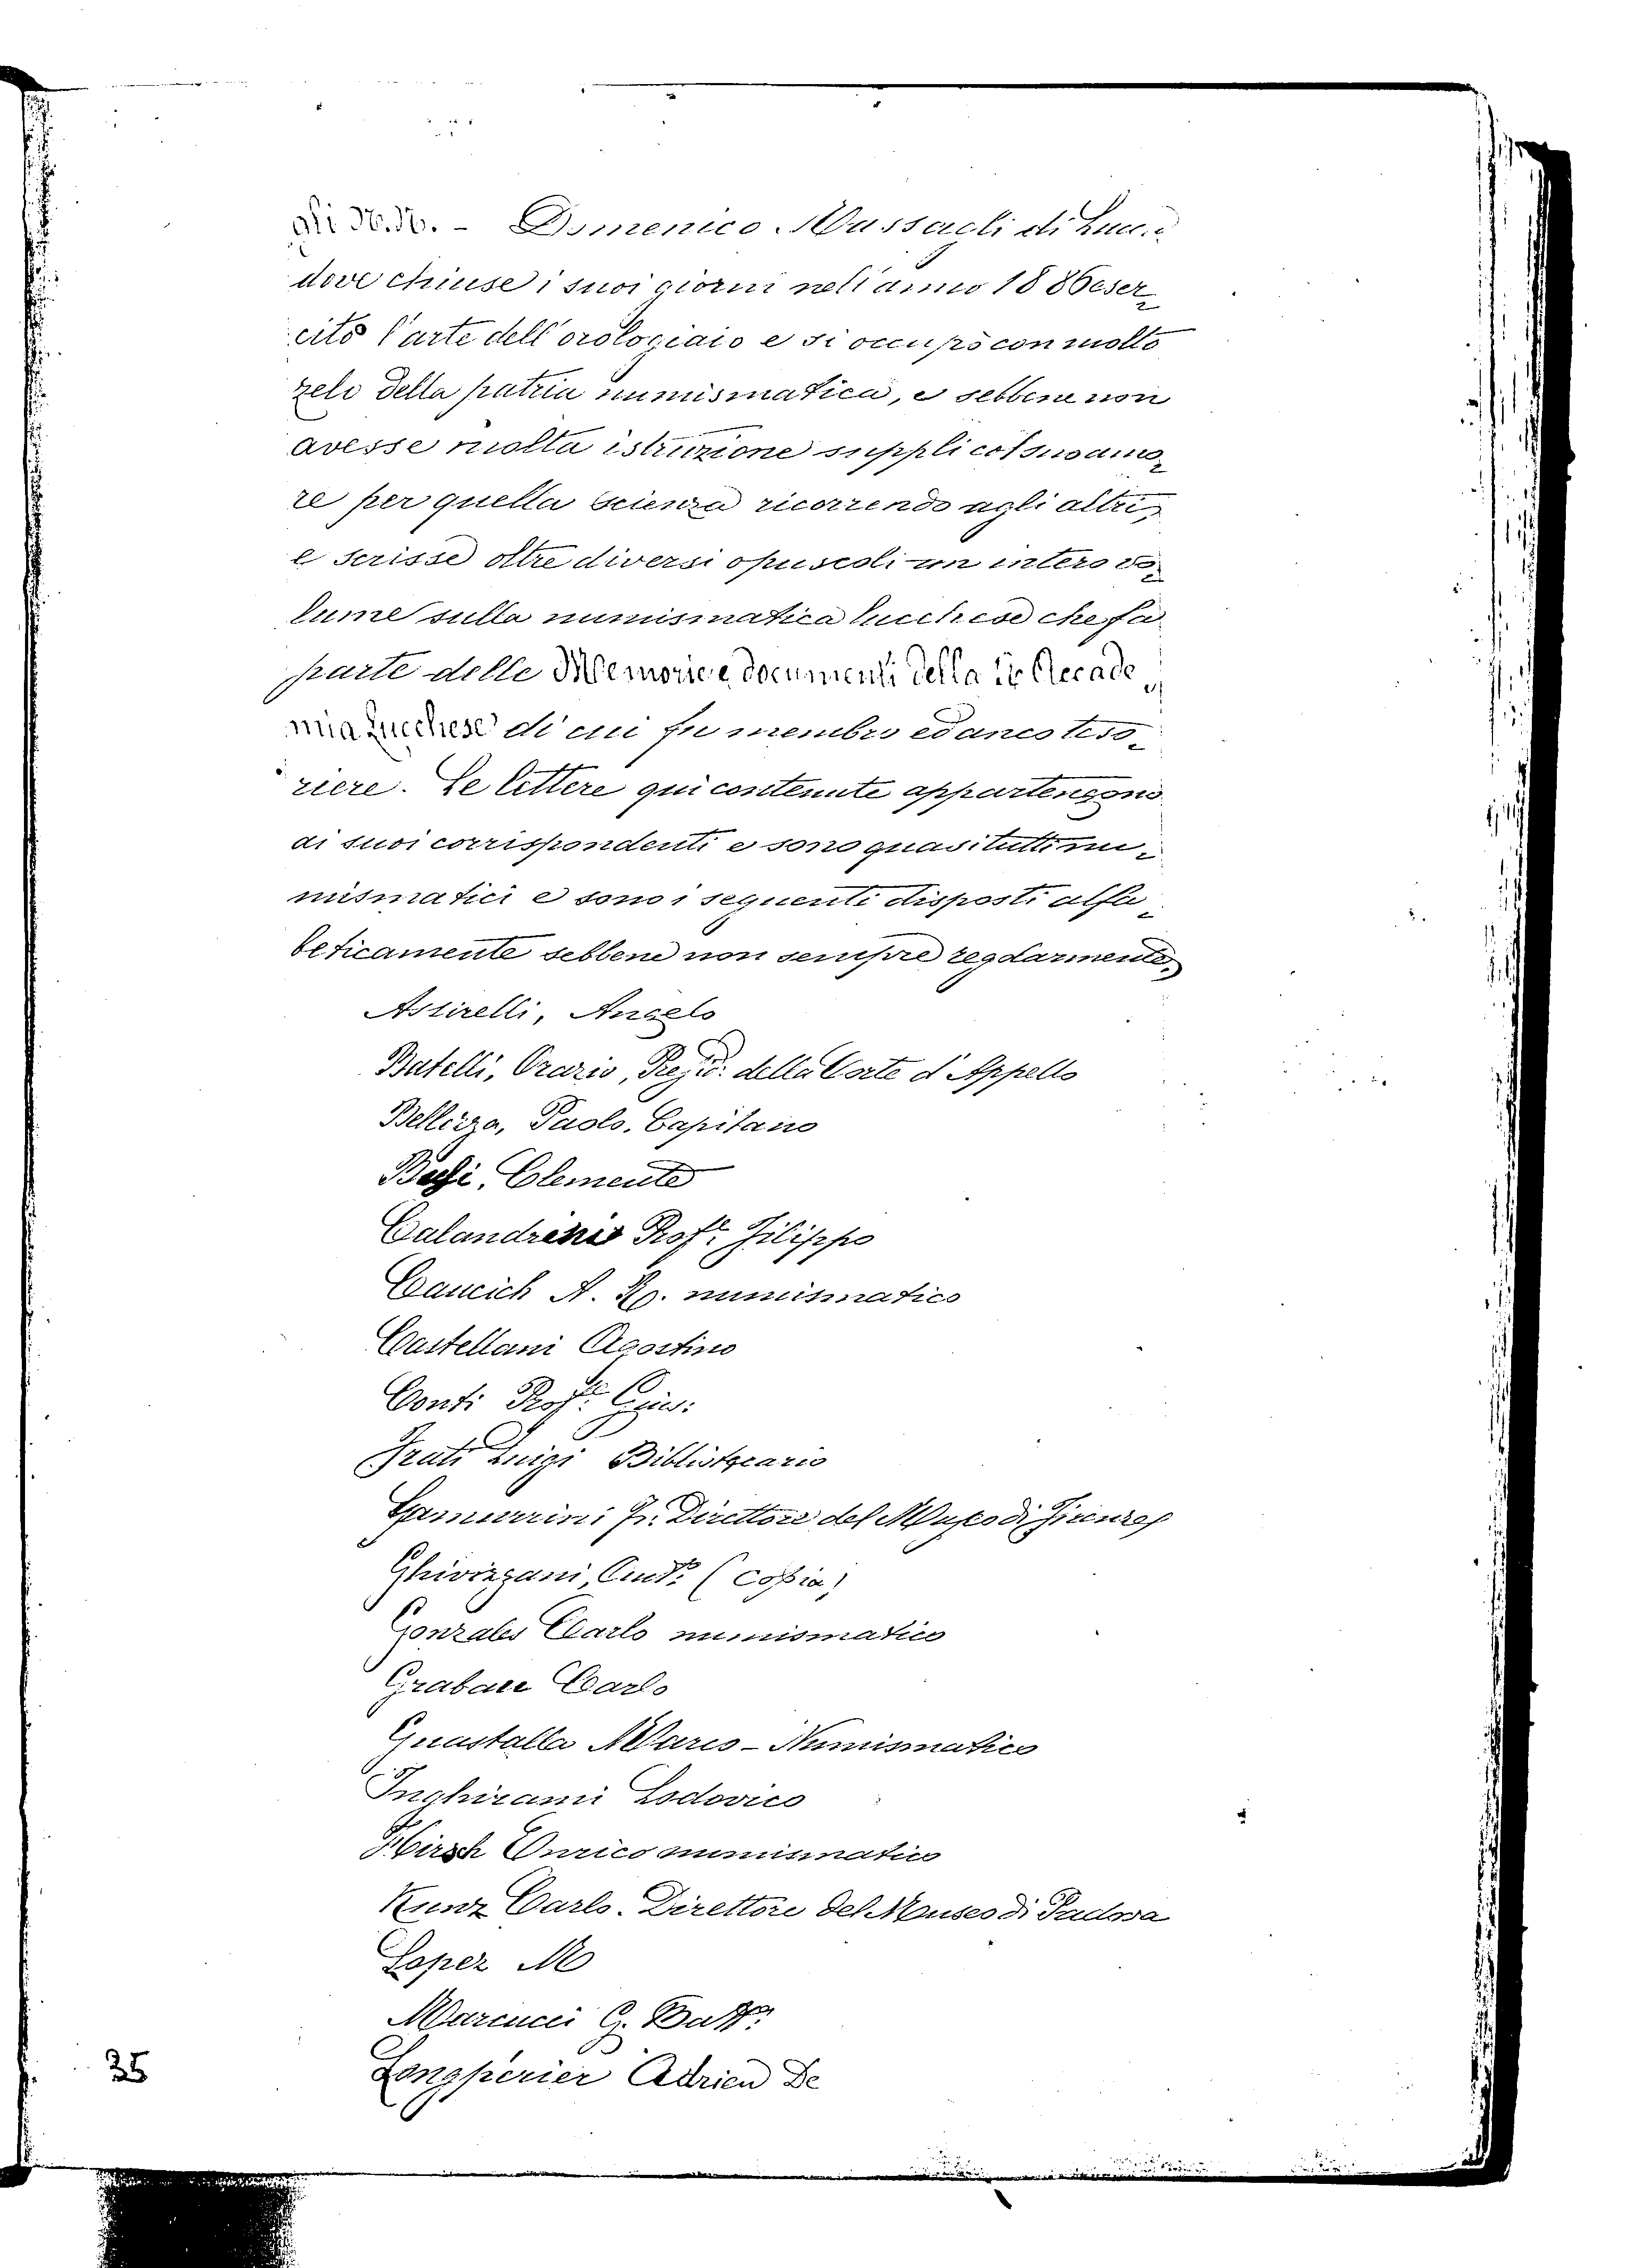 gli N.N. - Domenico Massagli di Lucca
dove chiuse i suoi giorni nell'anno 1886 eser-
citò l'arte dell'orologiaio e si occupò con molto
zelo della patria numismatica, e sebbene non
avesse molta istruzione supplì col suo amo-
re per quella scienza ricorrendo agli altri,
e scrisse oltre diversi opuscoli un intero vo-
lume sulla numismatica lucchese che fa
parte delle Memorie e documenti della R. Accade-
mia Lucchese di cui fu membro ed anco teso-
riere. Le lettere qui contenute appartengono
ai suoi corrispondenti e sono quasi tutti nu-
mismatici e sono i seguenti disposti alfa-
beticamente sebbene non sempre regolarmente,
Assirelli, Angelo
Batelli, Orazio, della Corte d'Appello
Paolo. Capitano
Clemente
Calandrini Profe. Filippo
Caucich A. R. numismatico
Castellani Agostino
Conti Profe. Gius:
Frati Luigi Bibliotecario
Gamurrini Fr. Direttore del Museo di Firenze
Ghivizzani, Anto. (copia)
Gonzales Carlo numismatico
Grabau Carlo
Guastalla Marco - Numismatico
Inghirami Lodovico
Hirsch Enrico numismatico
Kunz Carlo. Direttore del Museo di Padova
Lopez M
Marcucci G. Batta.
Longpérier Adrien De
35